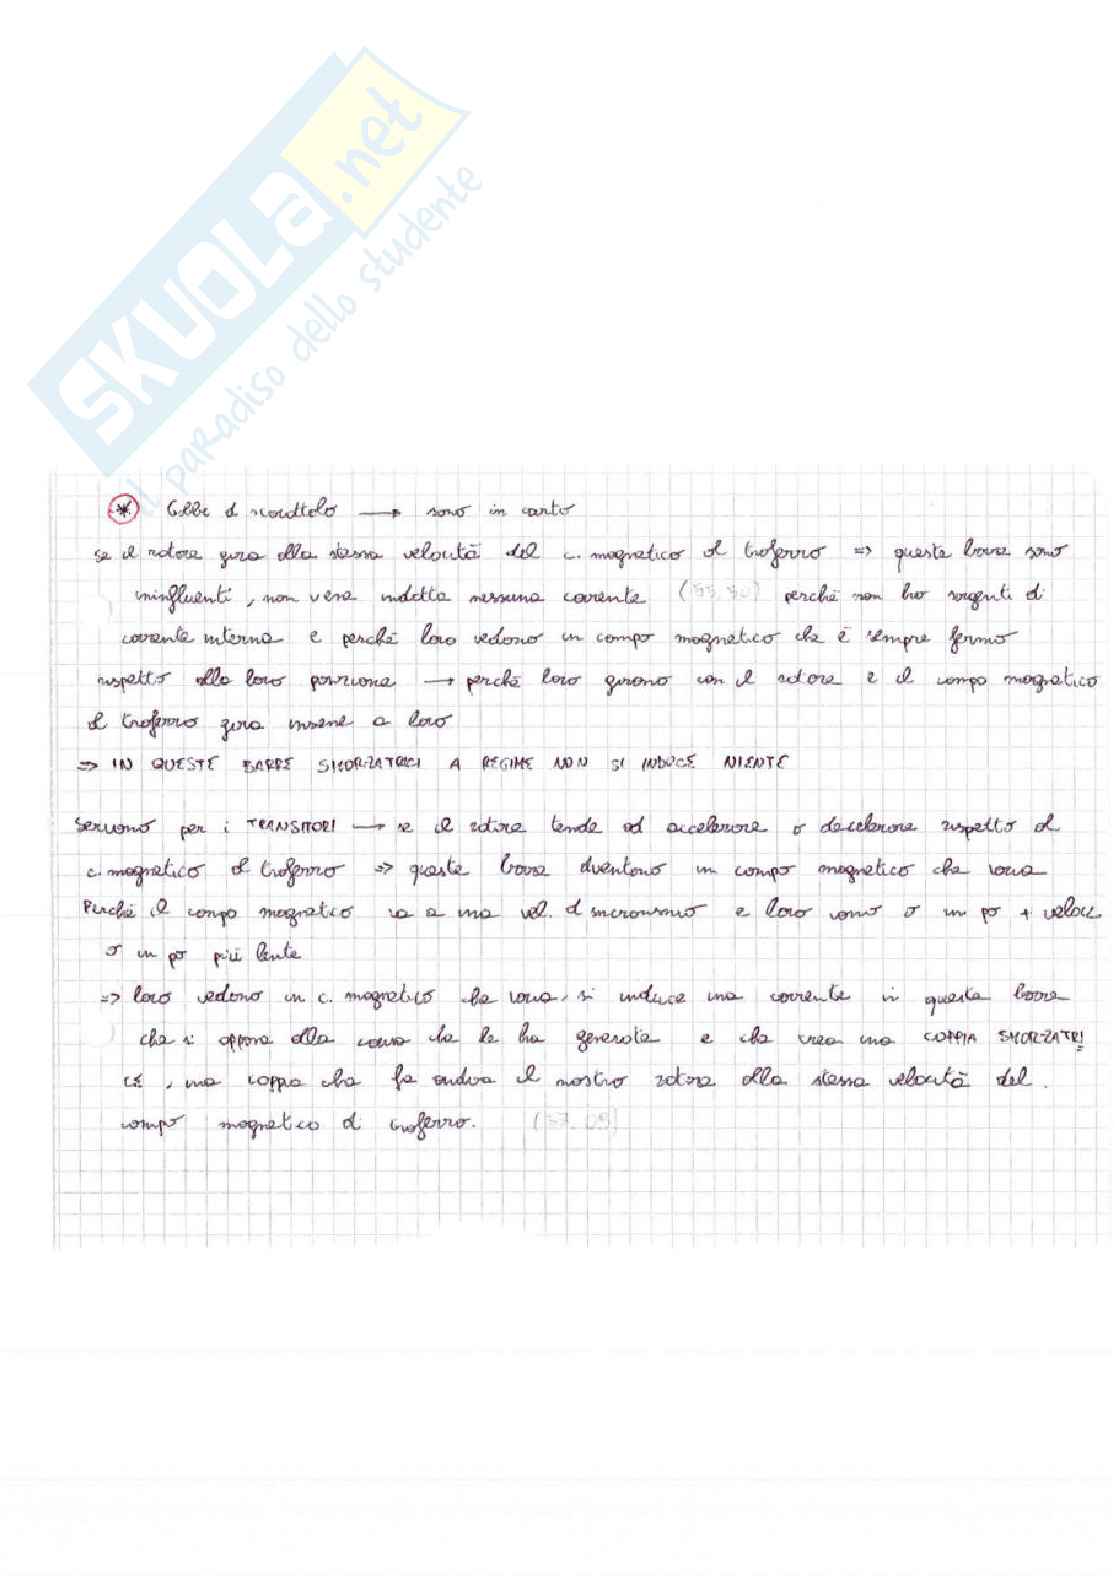 SKUOLA.net
il paradiso dello studente
* Gabbie di scoiattolo → sono in corto
se il rotore gira alla stessa velocità del c. magnetico al traferro => queste barre sono
ininfluenti, non viene indotta nessuna corrente (33.30) perché non ho sorgenti di
corrente interna e perché loro vedono un campo magnetico che è sempre fermo
rispetto alla loro posizione → perché loro girono con il rotore e il campo magnetico
al traferro gira insieme a loro
=> IN QUESTE BARRE SMORZATRICI A REGIME NON SI INDUCE NIENTE
Servono per i TRANSITORI → se il rotore tende ad accelerare o decelerare rispetto al
c. magnetico al traferro => queste barre diventono un campo magnetico che varia
Perché il campo magnetico va a una vel. di sincronismo e loro vanno o un po + veloci
o un po più lente
=> loro vedono un c. magnetico che varia, si induce una corrente in queste barre
che si oppone alla causa che le ha generate e che crea una COPPIA SMORZATRI
CE, una coppia che fa andare il nostro rotore alla stessa velocità del
campo magnetico di traferro. (37.09)